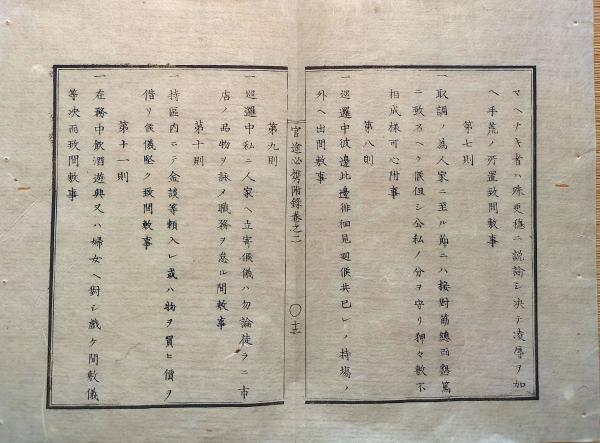 マヘナキ者ハ殊更穏ニ説諭シ决テ凌辱ヲ加
ヘ手荒ノ所置致間敷事
第七則
一取調ノ為人家ニ至ル節ニハ接對筋總而懇篤
ニ致スヘク儀但シ公私ノ分ヲ守リ狎々敷不
相成様可心附事
第八則
一巡邏中彼邊此邊徘徊見廻候共已レノ持場ノ
外ヘ出間敷事
官途必携附録巻之二
〇十三
第九則
一巡邏中私ニ人家ヘ立寄候儀ハ勿論徒ラニ市
店ノ品物ヲ詠ヲ職務ヲ怠ル間敷事
第十則
一持區内ニテ金談等頼入レ或ハ物ヲ買ヒ價ヲ
借リ候儀堅ク致間敷事
第十一則
一在務中飲酒遊興又ハ婦女ヘ對シ戯ケ間敷儀
等决而致間敷事